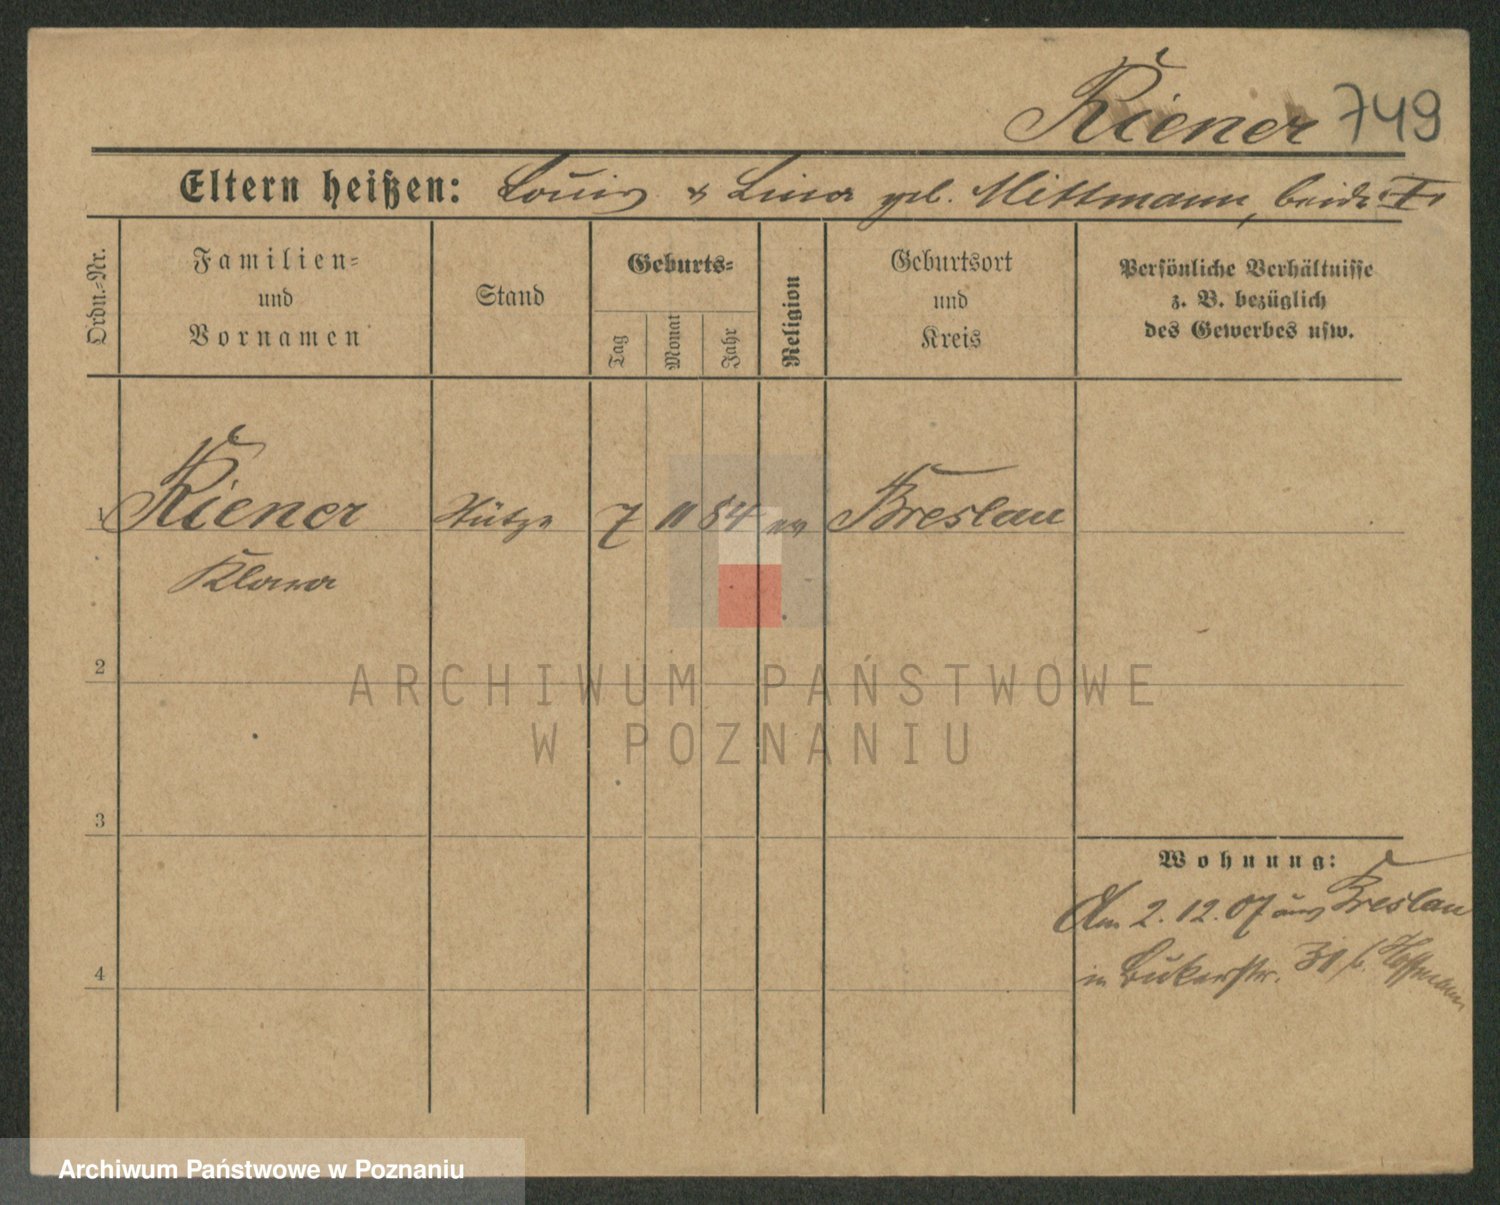 Kiener 749
Eltern heißen: Louis & Lina geb. Mittmann, beide †.
Ordn.-Nr.
Familien-
und
Vornamen
Stand
Geburts-
Tag
Monat
Jahr
Religion
Geburtsort
und
Kreis
Persönliche Verhältnisse
z. B. bezüglich
des Gewerbes usw.
1 Kiener Stütze 7 11 84 ev Breslau
Klara
2
ARCHIWUM PAŃSTWOWE
W POZNANIU
3
Wohnung:
Am 2. 12. 07 aus Breslau
4
in Bukerstr. 31 b. Hoffmann
Archiwum Państwowe w Poznaniu